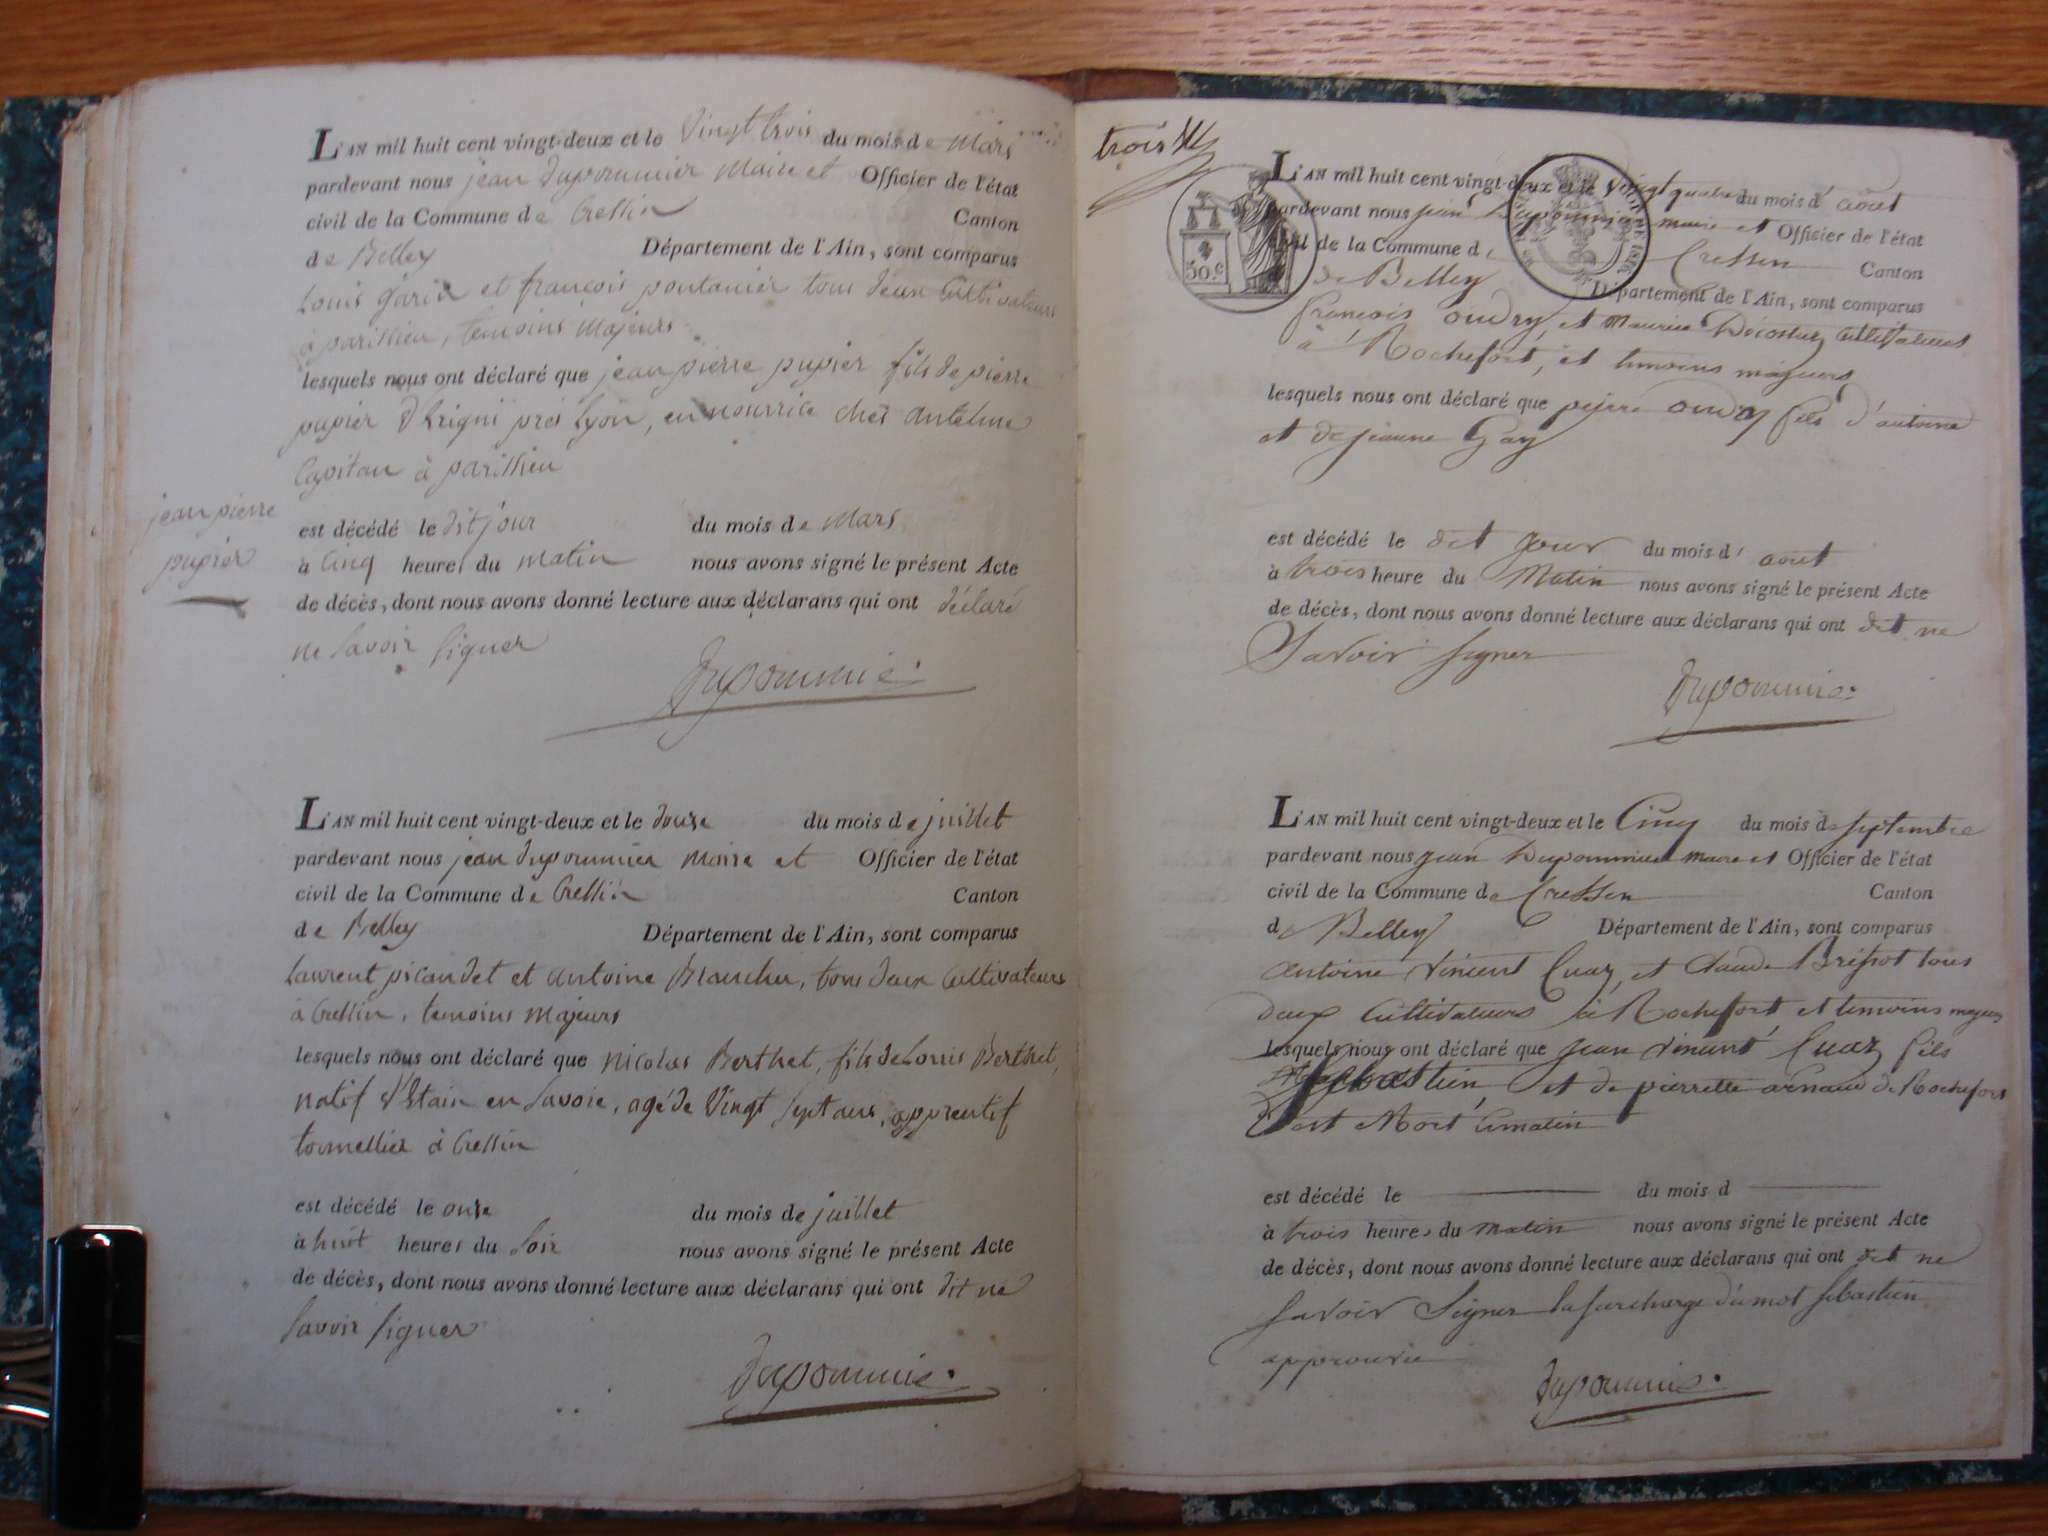 L'AN mil huit cent vingt-deux et le Vingt trois du mois de Mars
pardevant nous jean dupommier Maire et Officier de l'état
civil de la Commune de Cressin Canton
de Belley Département de l'Ain, sont comparus
Louis garin et françois pontanier tous deux Cultivateurs
à parissieu, temoins Majeurs
lesquels nous ont déclaré que jean pierre pupier fils de pierre
pupier d'Irigni près Lyon, en nourrice chés antelme
Capitan à parissieu
jean pierre
pupier
est décédé le dit jour du mois de Mars
à Cinq heures du Matin nous avons signé le présent Acte
de décès, dont nous avons donné lecture aux déclarans qui ont déclaré
ne Savoir Signer
Dupommie
L'AN mil huit cent vingt-deux et le douze du mois de juillet
pardevant nous jean dupommier Maire et Officier de l'état
civil de la Commune de Cressin Canton
de Belley Département de l'Ain, sont comparus
Laurent picaudet et antoine Blanchin, tous deux Cultivateurs
à Cressin, temoins Majeurs
lesquels nous ont déclaré que Nicolas Berthet, fils de Louis Berthet,
natif d'Etain en Savoie, agé de Vingt Sept ans, apprentif
tonnellier à Cressin
est décédé le onze du mois de juillet
à huit heures du Soir nous avons signé le présent Acte
de décès, dont nous avons donné lecture aux déclarans qui ont dit ne
Savoir Signer
Dupommie
trois
50.c
L'AN mil huit cent vingt-deux et le Vingt quatre du mois d'août
pardevant nous jean Dupommier maire et Officier de l'état
civil de la Commune de Cressin Canton
de Belley Département de l'Ain, sont comparus
francois oudry, et Maurice Decostaz Cultivateurs
à Rochefort, et temoins majeurs
lesquels nous ont déclaré que pierre oudry fils d'antoine
et de jeanne Gay
est décédé le dit jour du mois d'août
à trois heure du Matin nous avons signé le présent Acte
de décès, dont nous avons donné lecture aux déclarans qui ont dit ne
Savoir Signer
Dupommie
L'AN mil huit cent vingt-deux et le Cinq du mois de septembre
pardevant nous jean Dupommier maire et Officier de l'état
civil de la Commune de Cressin Canton
de Belley Département de l'Ain, sont comparus
antoine Vincent Cuaz, et Claude Brissot tous
deux Cultivateurs à Rochefort et temoins majeurs
lesquels nous ont déclaré que jean Vincent Cuaz fils
Sebastien, et de pierrette arnaud de Rochefort
est Mort Cematin
est décédé le du mois d
à trois heures du matin nous avons signé le présent Acte
de décès, dont nous avons donné lecture aux déclarans qui ont dit ne
Savoir Signer la surcharge du mot Sebastien
approuvée
Dupommie